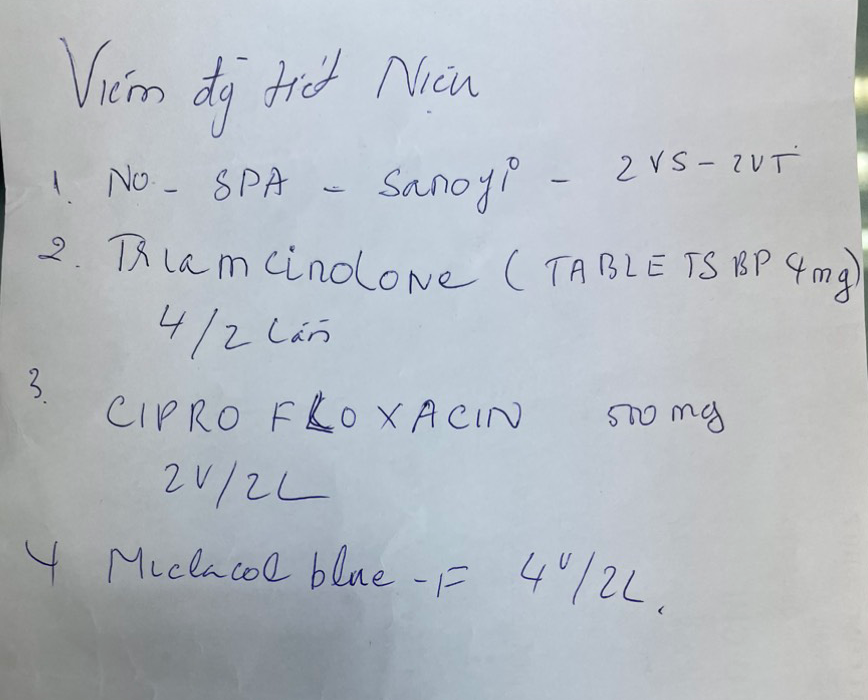 Viêm đg tiết Niệu
1. No - SPA - Sanofi - 2 VS - 2VT
2. TRIamcinoLoNe (TABLETS BP 4mg)
4/2 lần
3.
CIPRO FLOXACIN 500 mg
2V/2L
4 Miclacol blue - F 4V/2L.